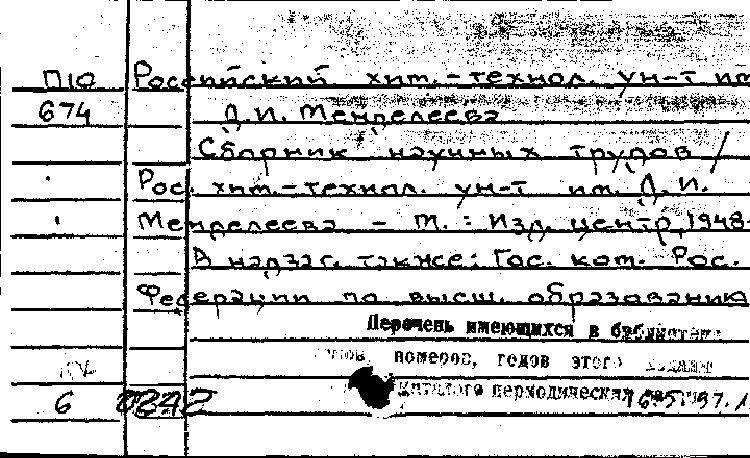 П10 Российский хим.-технол. ун-т им
674 Д.И. Менделеева
Сборник научных трудов /
Рос. хим.-технол. ун-т им. Д.И.
Менделеева - М.: Изд. центр, 1948-
В надзаг. также: Гос. ком. Рос.
Федерации по высш. образованию
Перечень имеющихся в библиотеке
номеров, годов этого издания
каталоге периодических
6